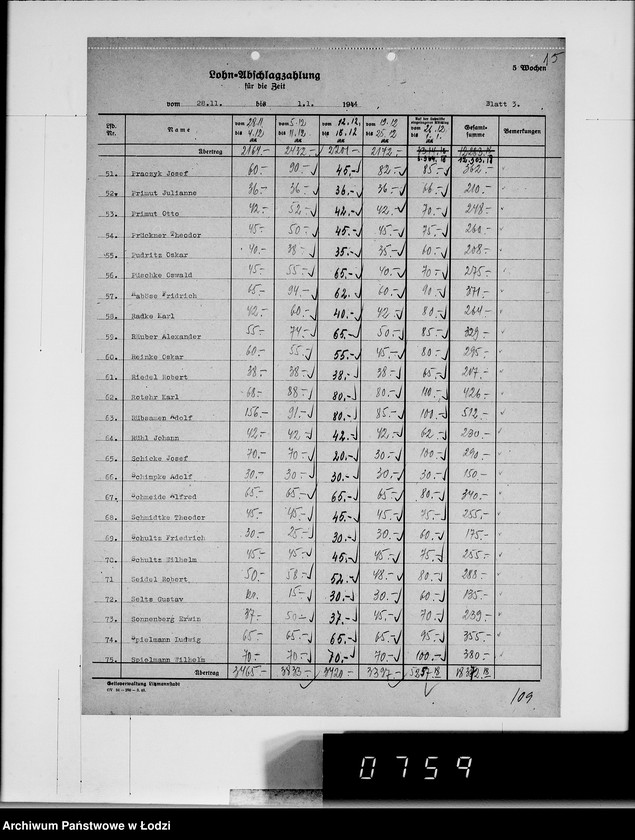 15
5 Wochen
Lohn-Abschlagzahlung
für die Zeit
vom 28.11. bis 1.1. 1944 Blatt 3.
Lfd. Nr. Name vom 28.11 bis 4.12. vom 5.12. bis 11.12. vom 12.12. bis 18.12 vom 19.12 bis 25.12 vom 26.12. bis 1.1. Gesamtsumme Bemerkungen
Übertrag 2164.- 2432.- 2201.- 2172.-
51. Praczyk Josef 60.- 90.- 45.- 82.- 85.- 362.-
52. Primut Julianne 36.- 36.- 36.- 36.- 66.- 210.-
53. Primut Otto 42.- 52.- 42.- 42.- 70.- 248.-
54. Prückner Theodor 45.- 50.- 45.- 45.- 75.- 260.-
55. Pudritz Oskar 40.- 38.- 35.- 35.- 60.- 208.-
56. Püschke Oswald 45.- 55.- 65.- 40.- 70.- 275.-
57. Raböse Fridrich 65.- 94.- 62.- 60.- 90.- 371.-
58. Radke Karl 42.- 60.- 40.- 42.- 80.- 264.-
59. Räuber Alexander 55.- 74.- 65.- 50.- 85.- 329.-
60. Reinke Oskar 60.- 55.- 55.- 45.- 80.- 295.-
61. Riedel Robert 38.- 38.- 38.- 38.- 65.- 217.-
62. Rotehr Karl 68.- 88.- 80.- 80.- 110.- 426.-
63. Rübsamen Adolf 156.- 91.- 80.- 85.- 100.- 512.-
64. Rühl Johann 42.- 42.- 42.- 42.- 62.- 230.-
65. Schicke Josef 70.- 70.- 20.- 30.- 100.- 290.-
66. Schimpke Adolf 30.- 30.- 30.- 30.- 30.- 150.-
67. Schmeide Alfred 65.- 65.- 65.- 65.- 80.- 340.-
68. Schmidtke Theodor 45.- 45.- 45.- 45.- 75.- 255.-
69. Schultz Friedrich 30.- 25.- 30.- 30.- 60.- 175.-
70. Schultz Wilhelm 45.- 45.- 45.- 45.- 75.- 255.-
71 Seidel Robert 50.- 58.- 52.- 48.- 80.- 288.-
72. Selts Gustav 15.- 30.- 30.- 60.- 135.-
73. Sonnenberg Erwin 37.- 50.- 37.- 45.- 70.- 239.-
74. Spielmann Ludwig 65.- 65.- 65.- 65.- 95.- 355.-
75. Spielmann Wilhelm 70.- 70.- 70.- 70.- 100.- 380.-
Übertrag 3465.- 3833.- 3420.- 3397.-
Gettoverwaltung Litzmannstadt
109
0759
Archiwum Państwowe w Łodzi